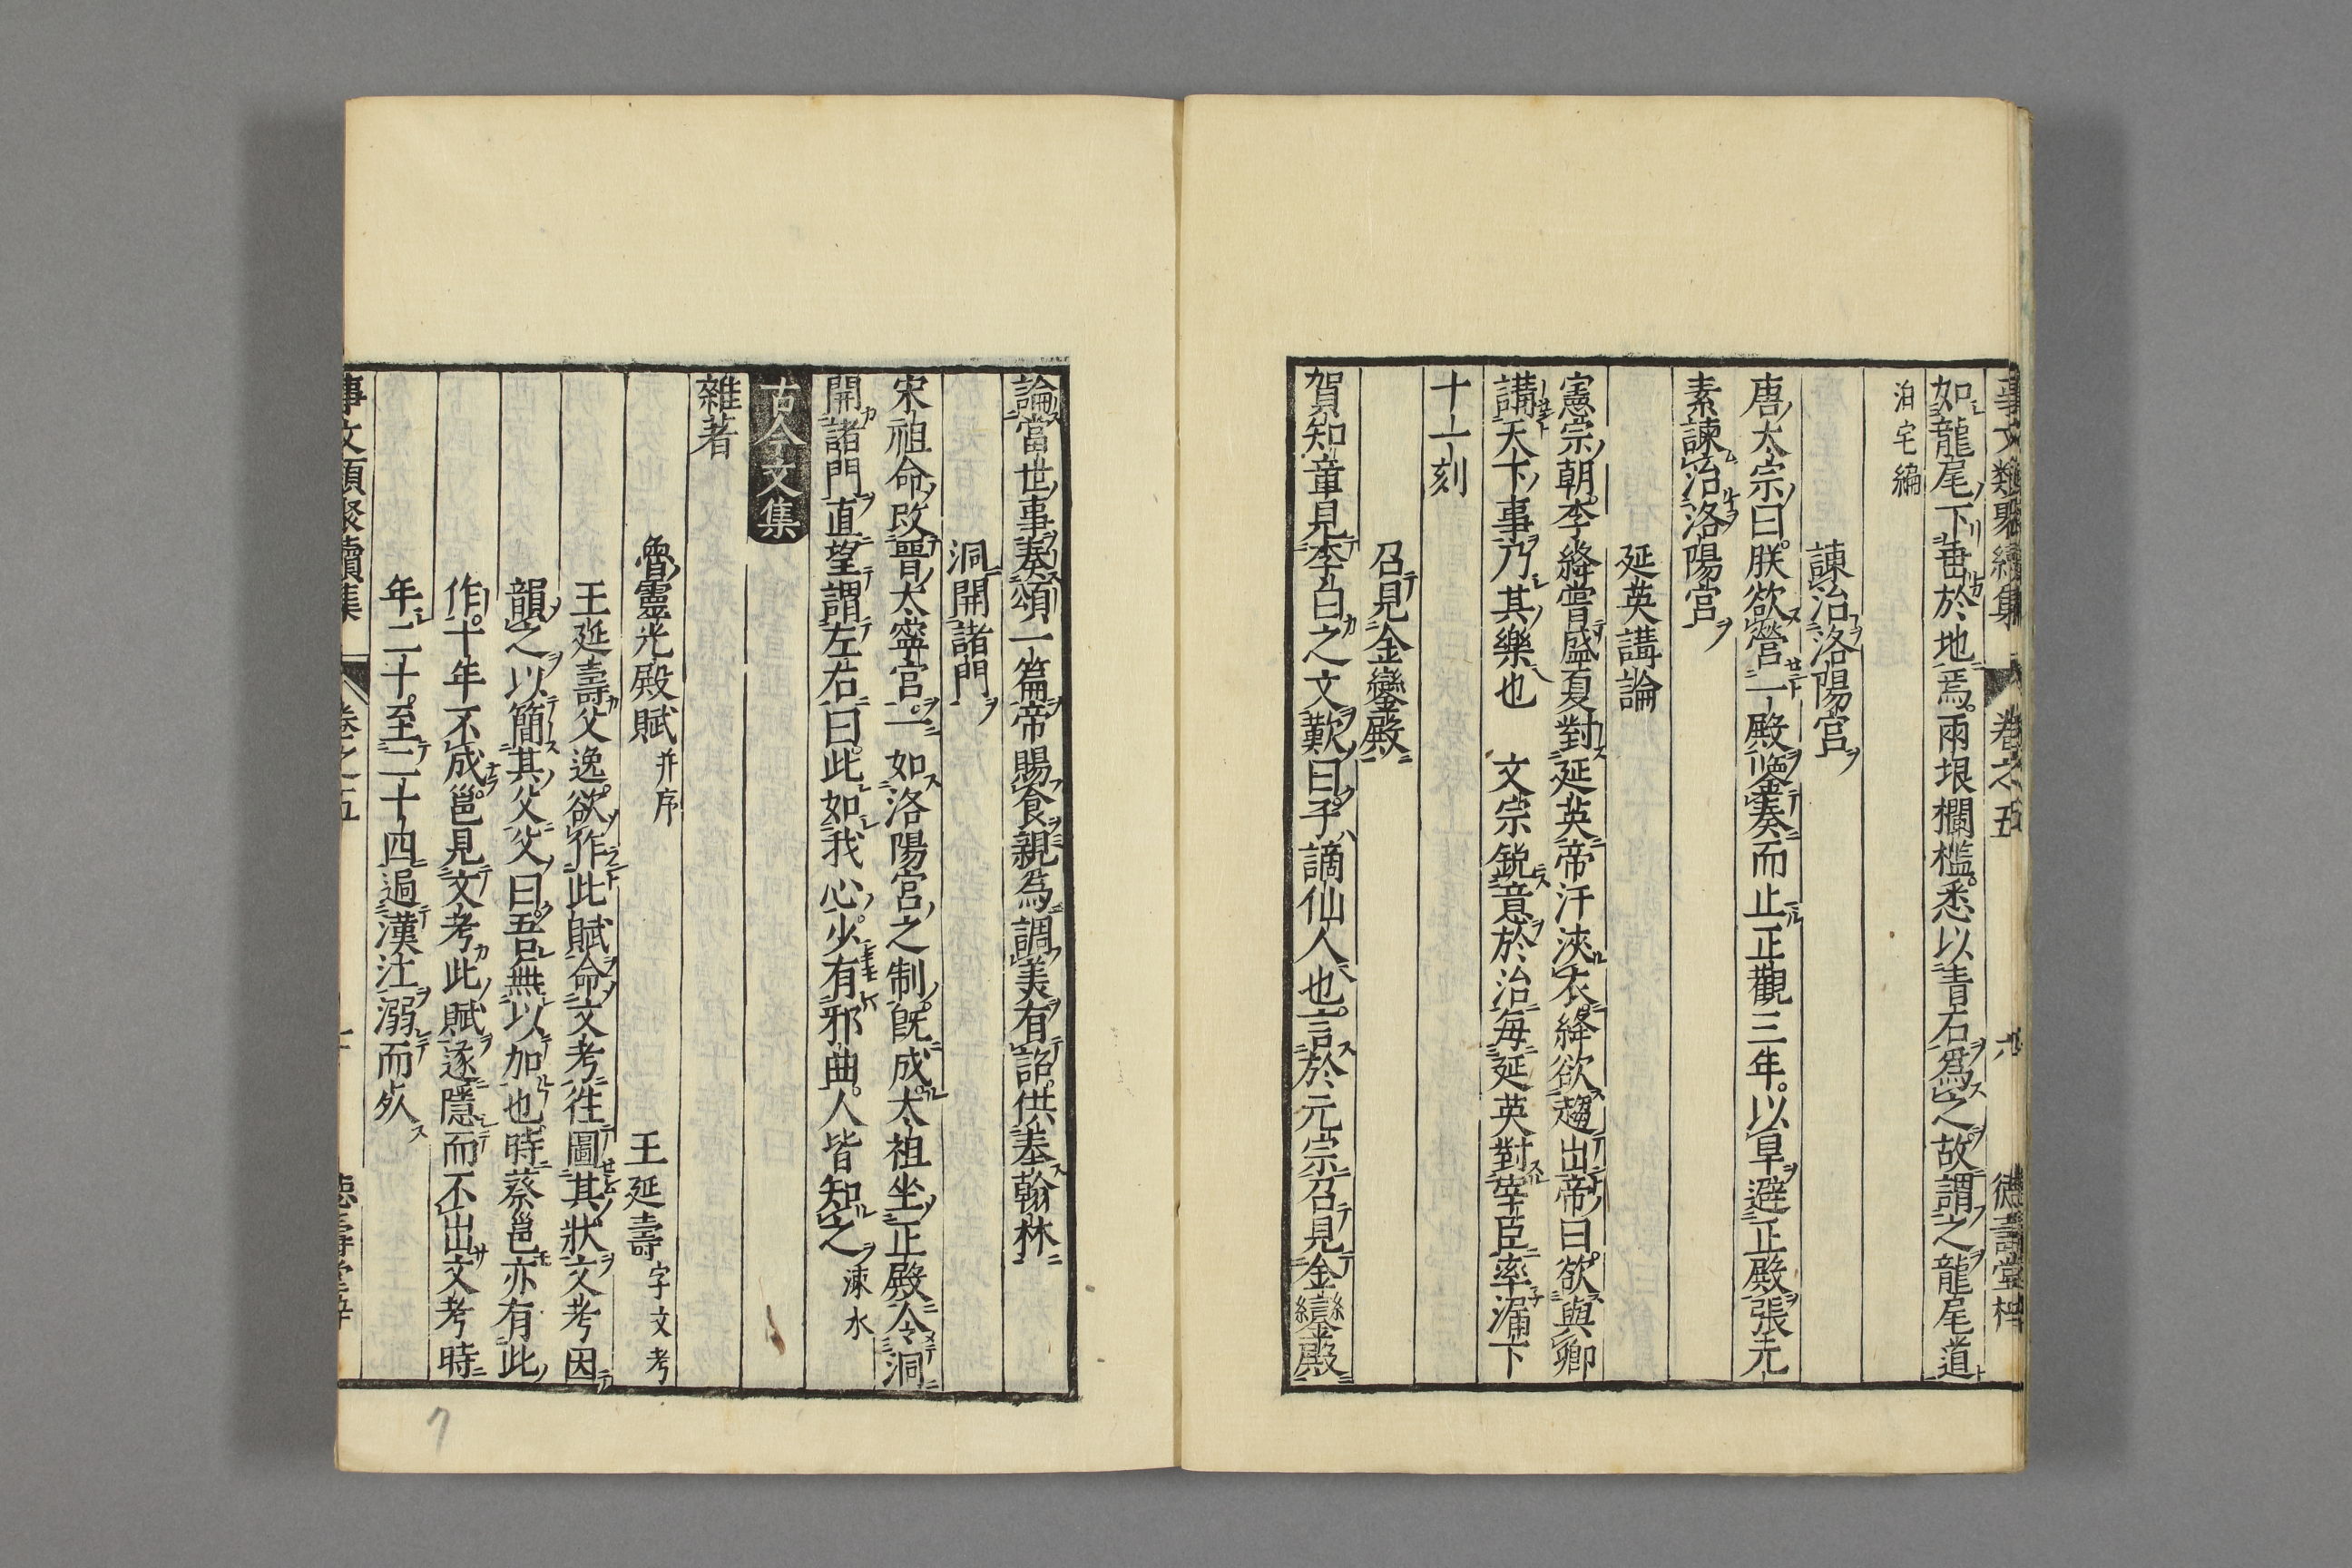 事文類聚續集 卷之五 六 德壽堂梓
如龍尾下垂於地焉兩垠欄檻悉以青石爲之故謂之龍尾道
泊宅編
諫治洛陽宮
唐太宗曰朕欲營一殿鑒秦而止正觀三年以旱避正殿張元
素諫治洛陽宮
延英講論
憲宗朝李絳嘗盛夏對延英帝汗浹衣絳欲趨出帝曰欲與卿
講天下事乃其樂也 文宗銳意於治每延英對宰臣率漏下
十一刻
召見金鑾殿
賀知章見李白之文歎曰子謫仙人也言於元宗召見金鑾殿
論當世事奏頌一篇帝賜食親爲調羹有詔供奉翰林
洞開諸門
宋祖命改晉太寧宮一如洛陽宮之制既成太祖坐正殿令洞
開諸門直望謂左右曰此如我心少有邪曲人皆知之 涑水
古今文集
雜著
魯靈光殿賦 并序 王延壽 字文考
王延壽父逸欲作此賦命文考往圖其狀文考因
韻之以簡其父父曰吾無以加也時蔡邕亦有此
作十年不成邕見文考此賦遂隱而不出文考時
年二十至二十四過漢江溺而死
事文類聚續集 卷之五 德壽堂梓
7